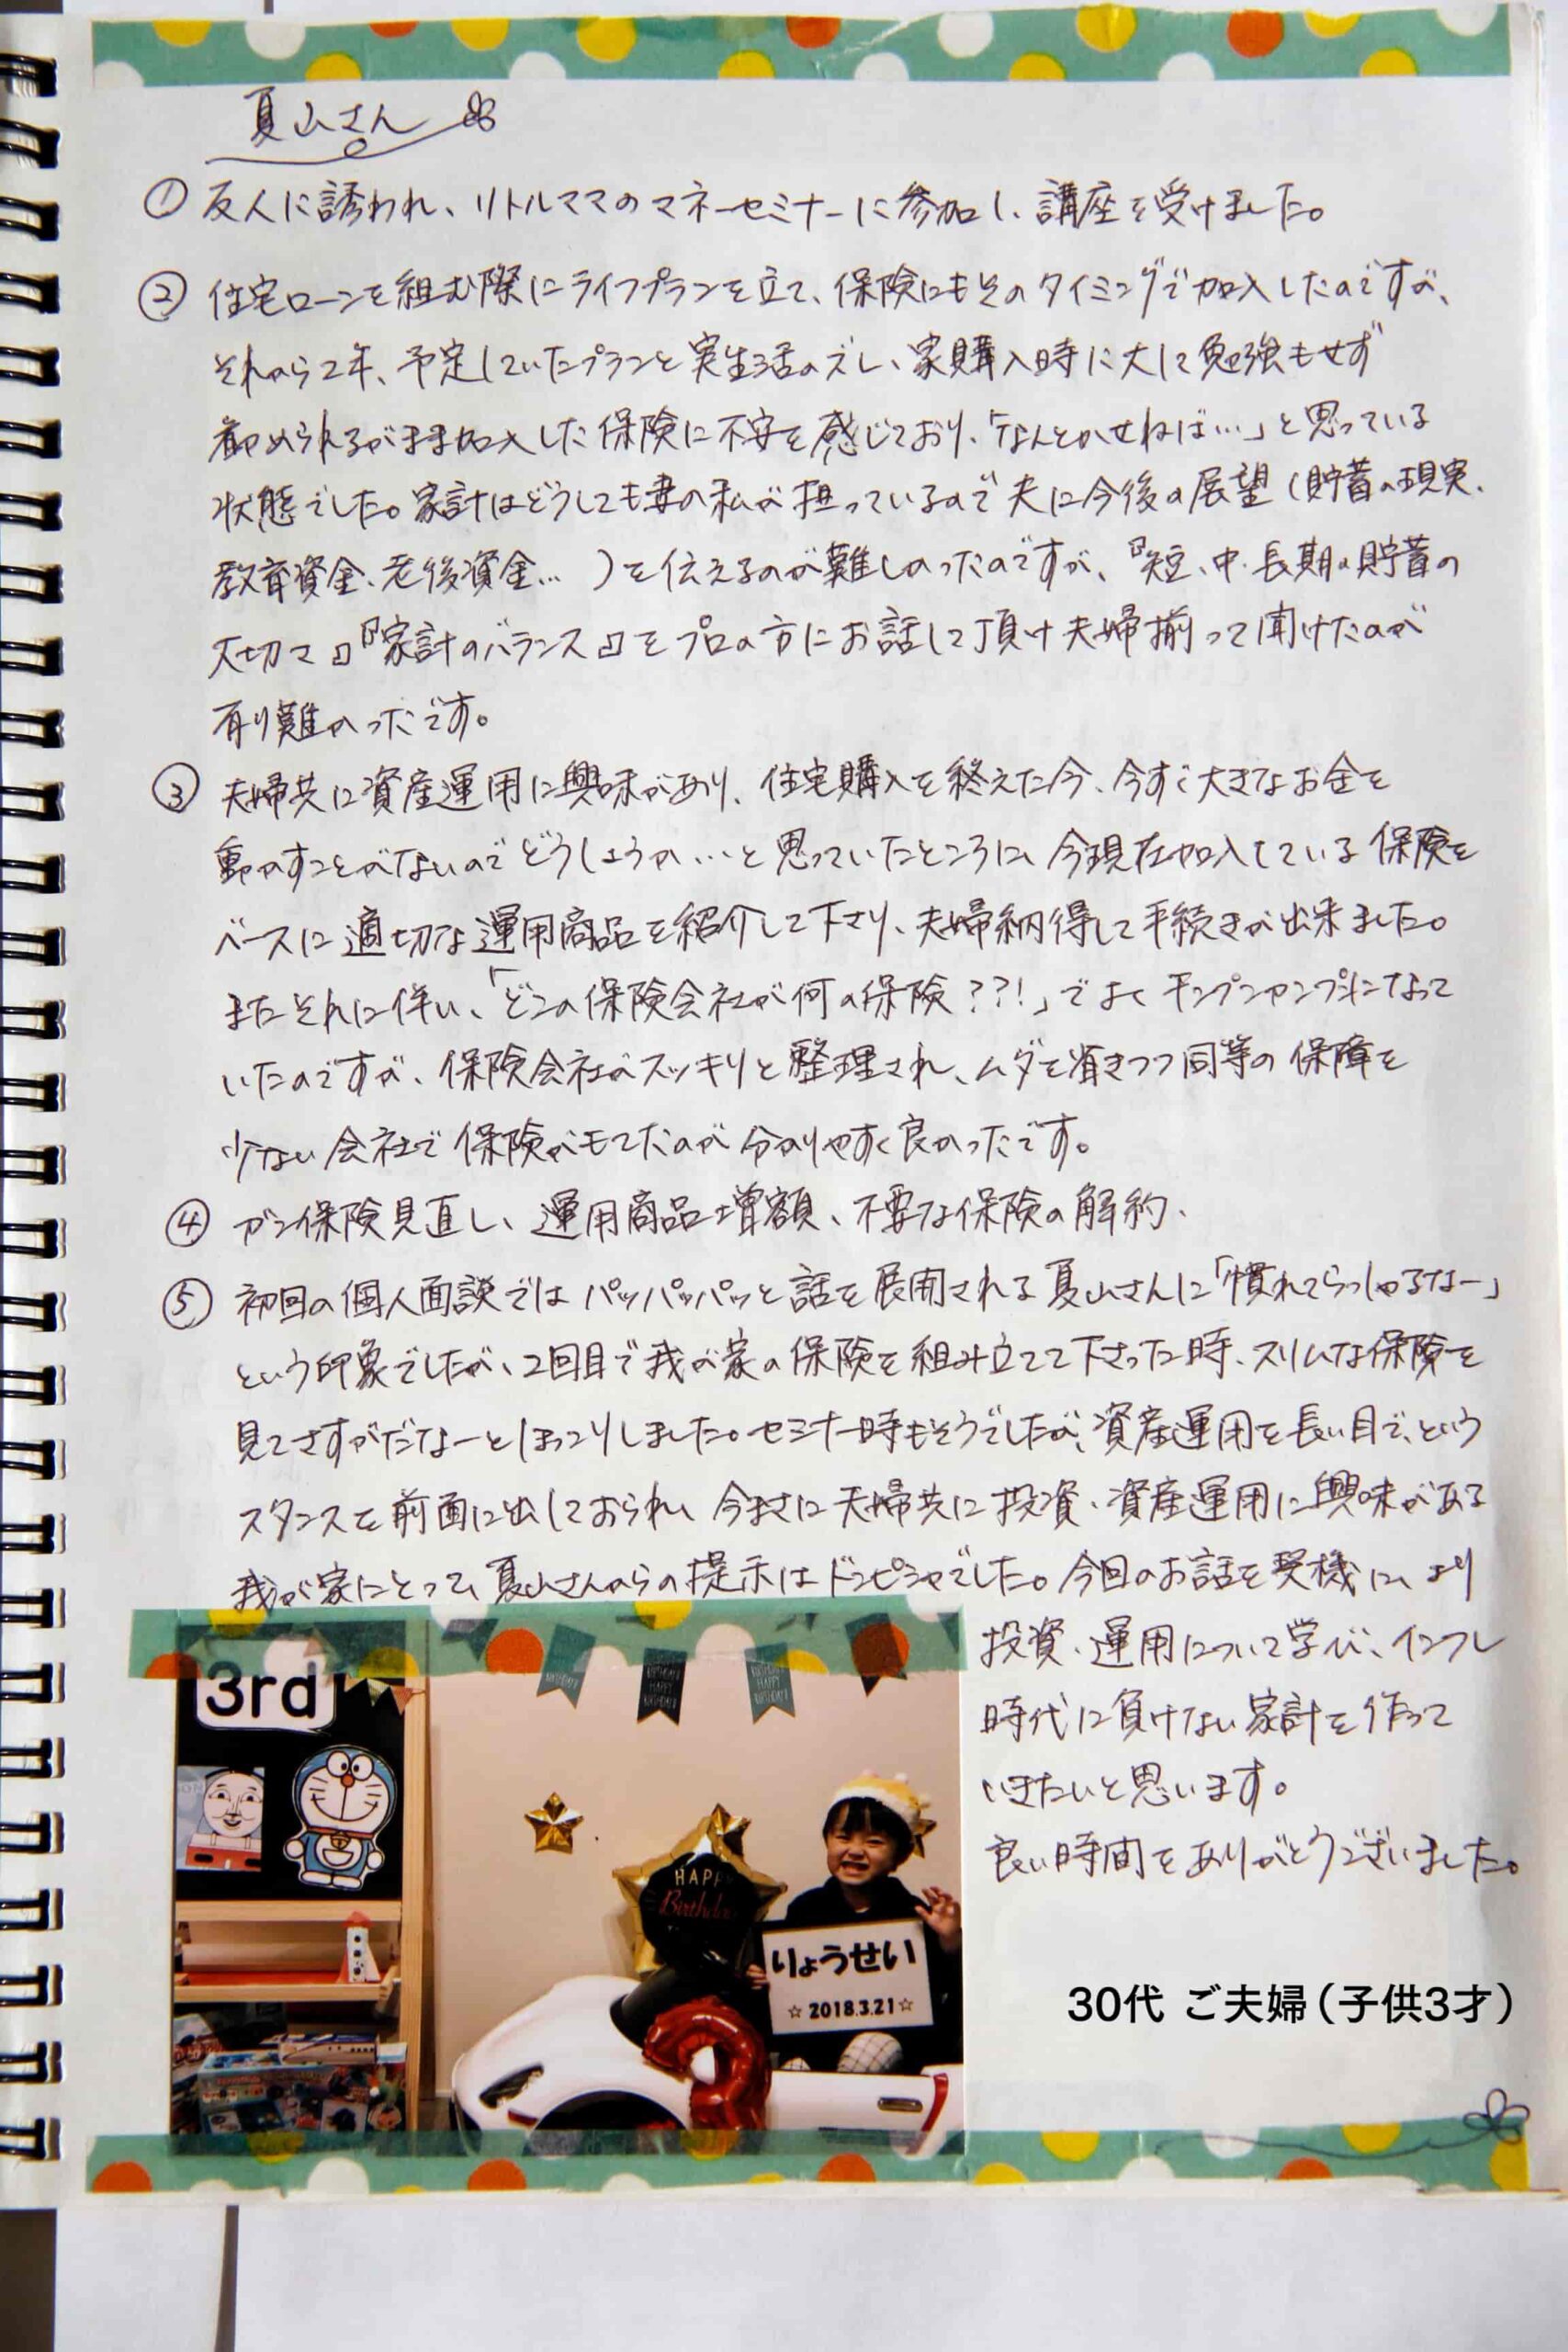 夏山さん
① 友人に誘われ、リトルママのマネーセミナーに参加し、講座を受けました。
② 住宅ローンを組む際にライフプランを立て、保険にもそのタイミングで加入したのですが、
それから2年、予定していたプランと実生活のズレ、家購入時に大して勉強もせず
勧められるがまま加入した保険に不安を感じており、「なんとかせねば…」と思っている
状態でした。家計はどうしても妻の私が担っているので夫に今後の展望(貯蓄の現実、
教育資金、老後資金…)を伝えるのが難しかったのですが、『短、中、長期の貯蓄の
大切さ』『家計のバランス』をプロの方にお話して頂け夫婦揃って聞けたのが
有り難かったです。
③ 夫婦共に資産運用に興味があり、住宅購入を終えた今、今すぐ大きなお金を
動かすことがないのでどうしようか…と思っていたところに、今現在加入している保険を
ベースに適切な運用商品を紹介して下さり、夫婦納得して手続きが出来ました。
またそれに伴い、「どこの保険会社が何の保険??!」でよくチンプンカンプンになって
いたのですが、保険会社がスッキリと整理され、ムダを省きつつ同等の保障を
少ない会社で保険がもてたのが分かりやすく良かったです。
④ ガン保険見直し、運用商品増額、不要な保険の解約、
⑤ 初回の個人面談ではパッパッパッと話を展開される夏山さんに「慣れてらっしゃるなー」
という印象でしたが、2回目で我が家の保険を組み立てて下さった時、スリムな保険を
見てさすがだなーとほっこりしました。セミナー時もそうでしたが、資産運用を長い目で、という
スタンスを前面に出しておられ、今まさに夫婦共に投資、資産運用に興味がある
我が家にとって、夏山さんからの提示はドンピシャでした。今回のお話を契機に、より
投資、運用について学び、インフレ
時代に負けない家計を作って
いきたいと思います。
良い時間をありがとうございました。
3rd
HAPPY
Birthday
りょうせい
☆ 2018.3.21 ☆
30代 ご夫婦(子供3才)